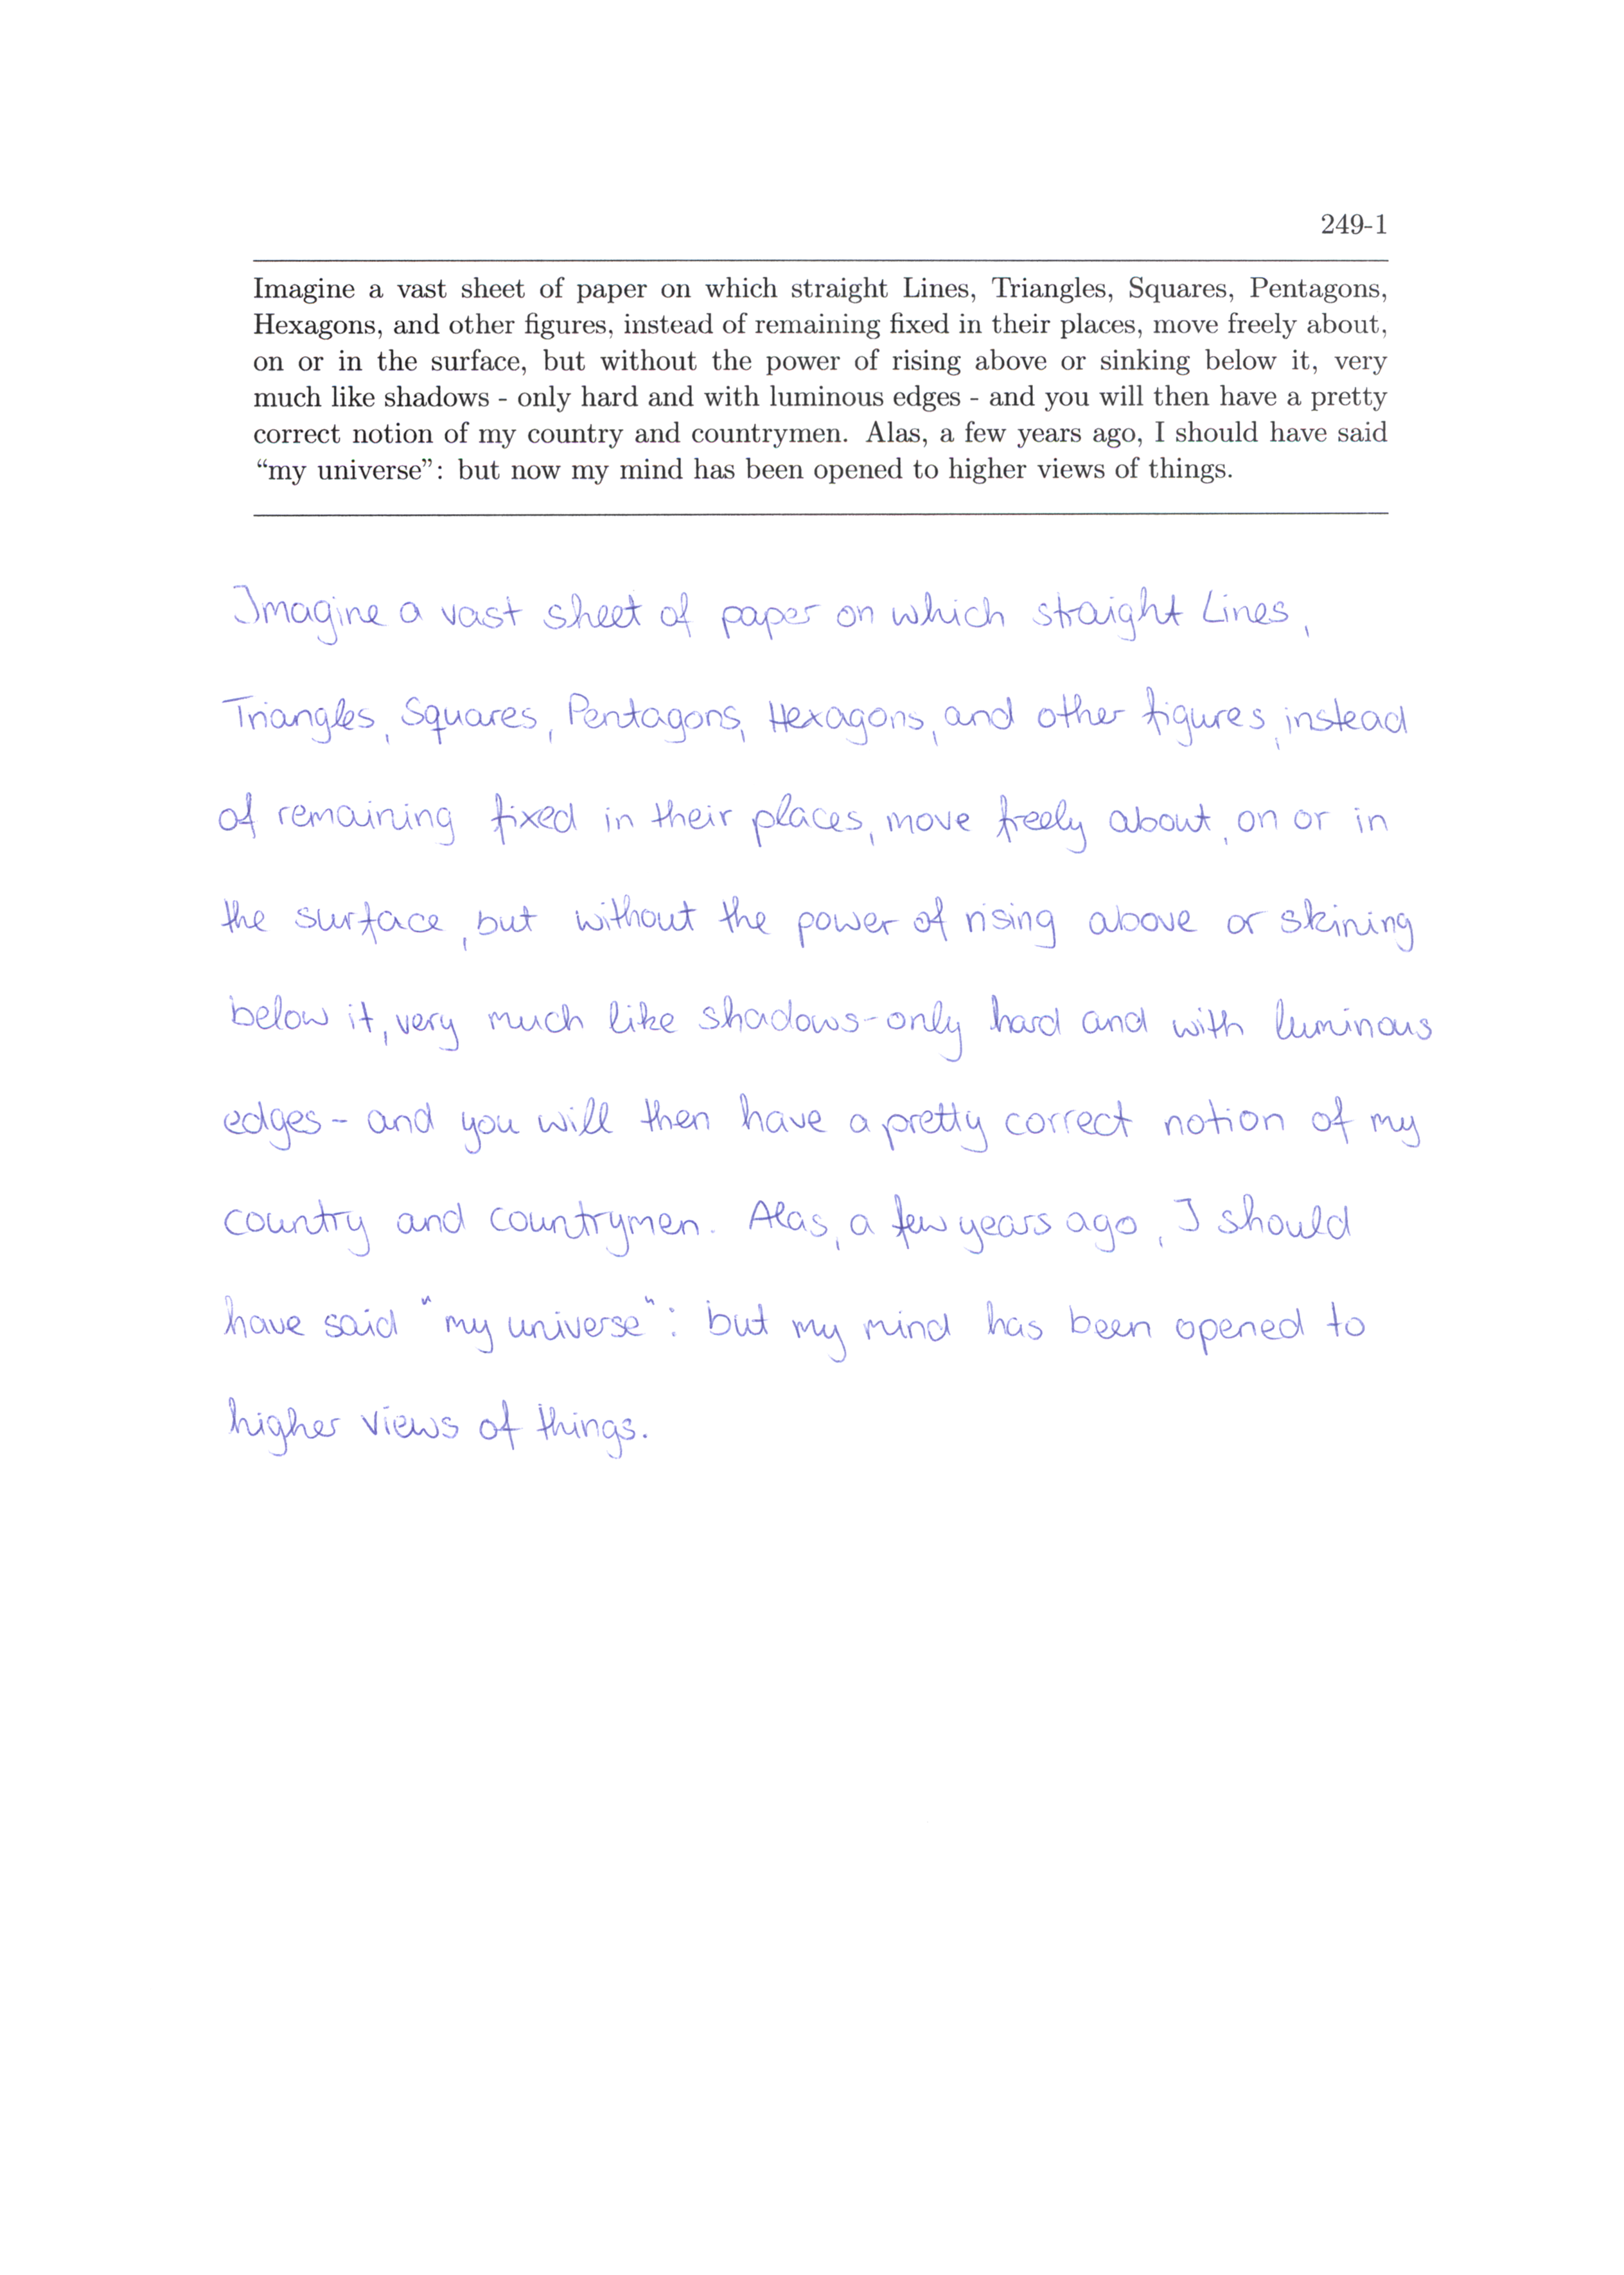 249-1
Imagine a vast sheet of paper on which straight Lines, Triangles, Squares, Pentagons,
Hexagons, and other figures, instead of remaining fixed in their places, move freely about,
on or in the surface, but without the power of rising above or sinking below it, very
much like shadows - only hard and with luminous edges - and you will then have a pretty
correct notion of my country and countrymen. Alas, a few years ago, I should have said
“my universe”: but now my mind has been opened to higher views of things.
Imagine a vast sheet of paper on which straight Lines,
Triangles, Squares, Pentagons, Hexagons, and other figures, instead
of remaining fixed in their places, move freely about, on or in
the surface, but without the power of rising above or skining
below it, very much like shadows-only hard and with luminous
edges - and you will then have a pretty correct notion of my
country and countrymen. Alas, a few years ago, I should
have said "my universe": but my mind has been opened to
higher views of things.